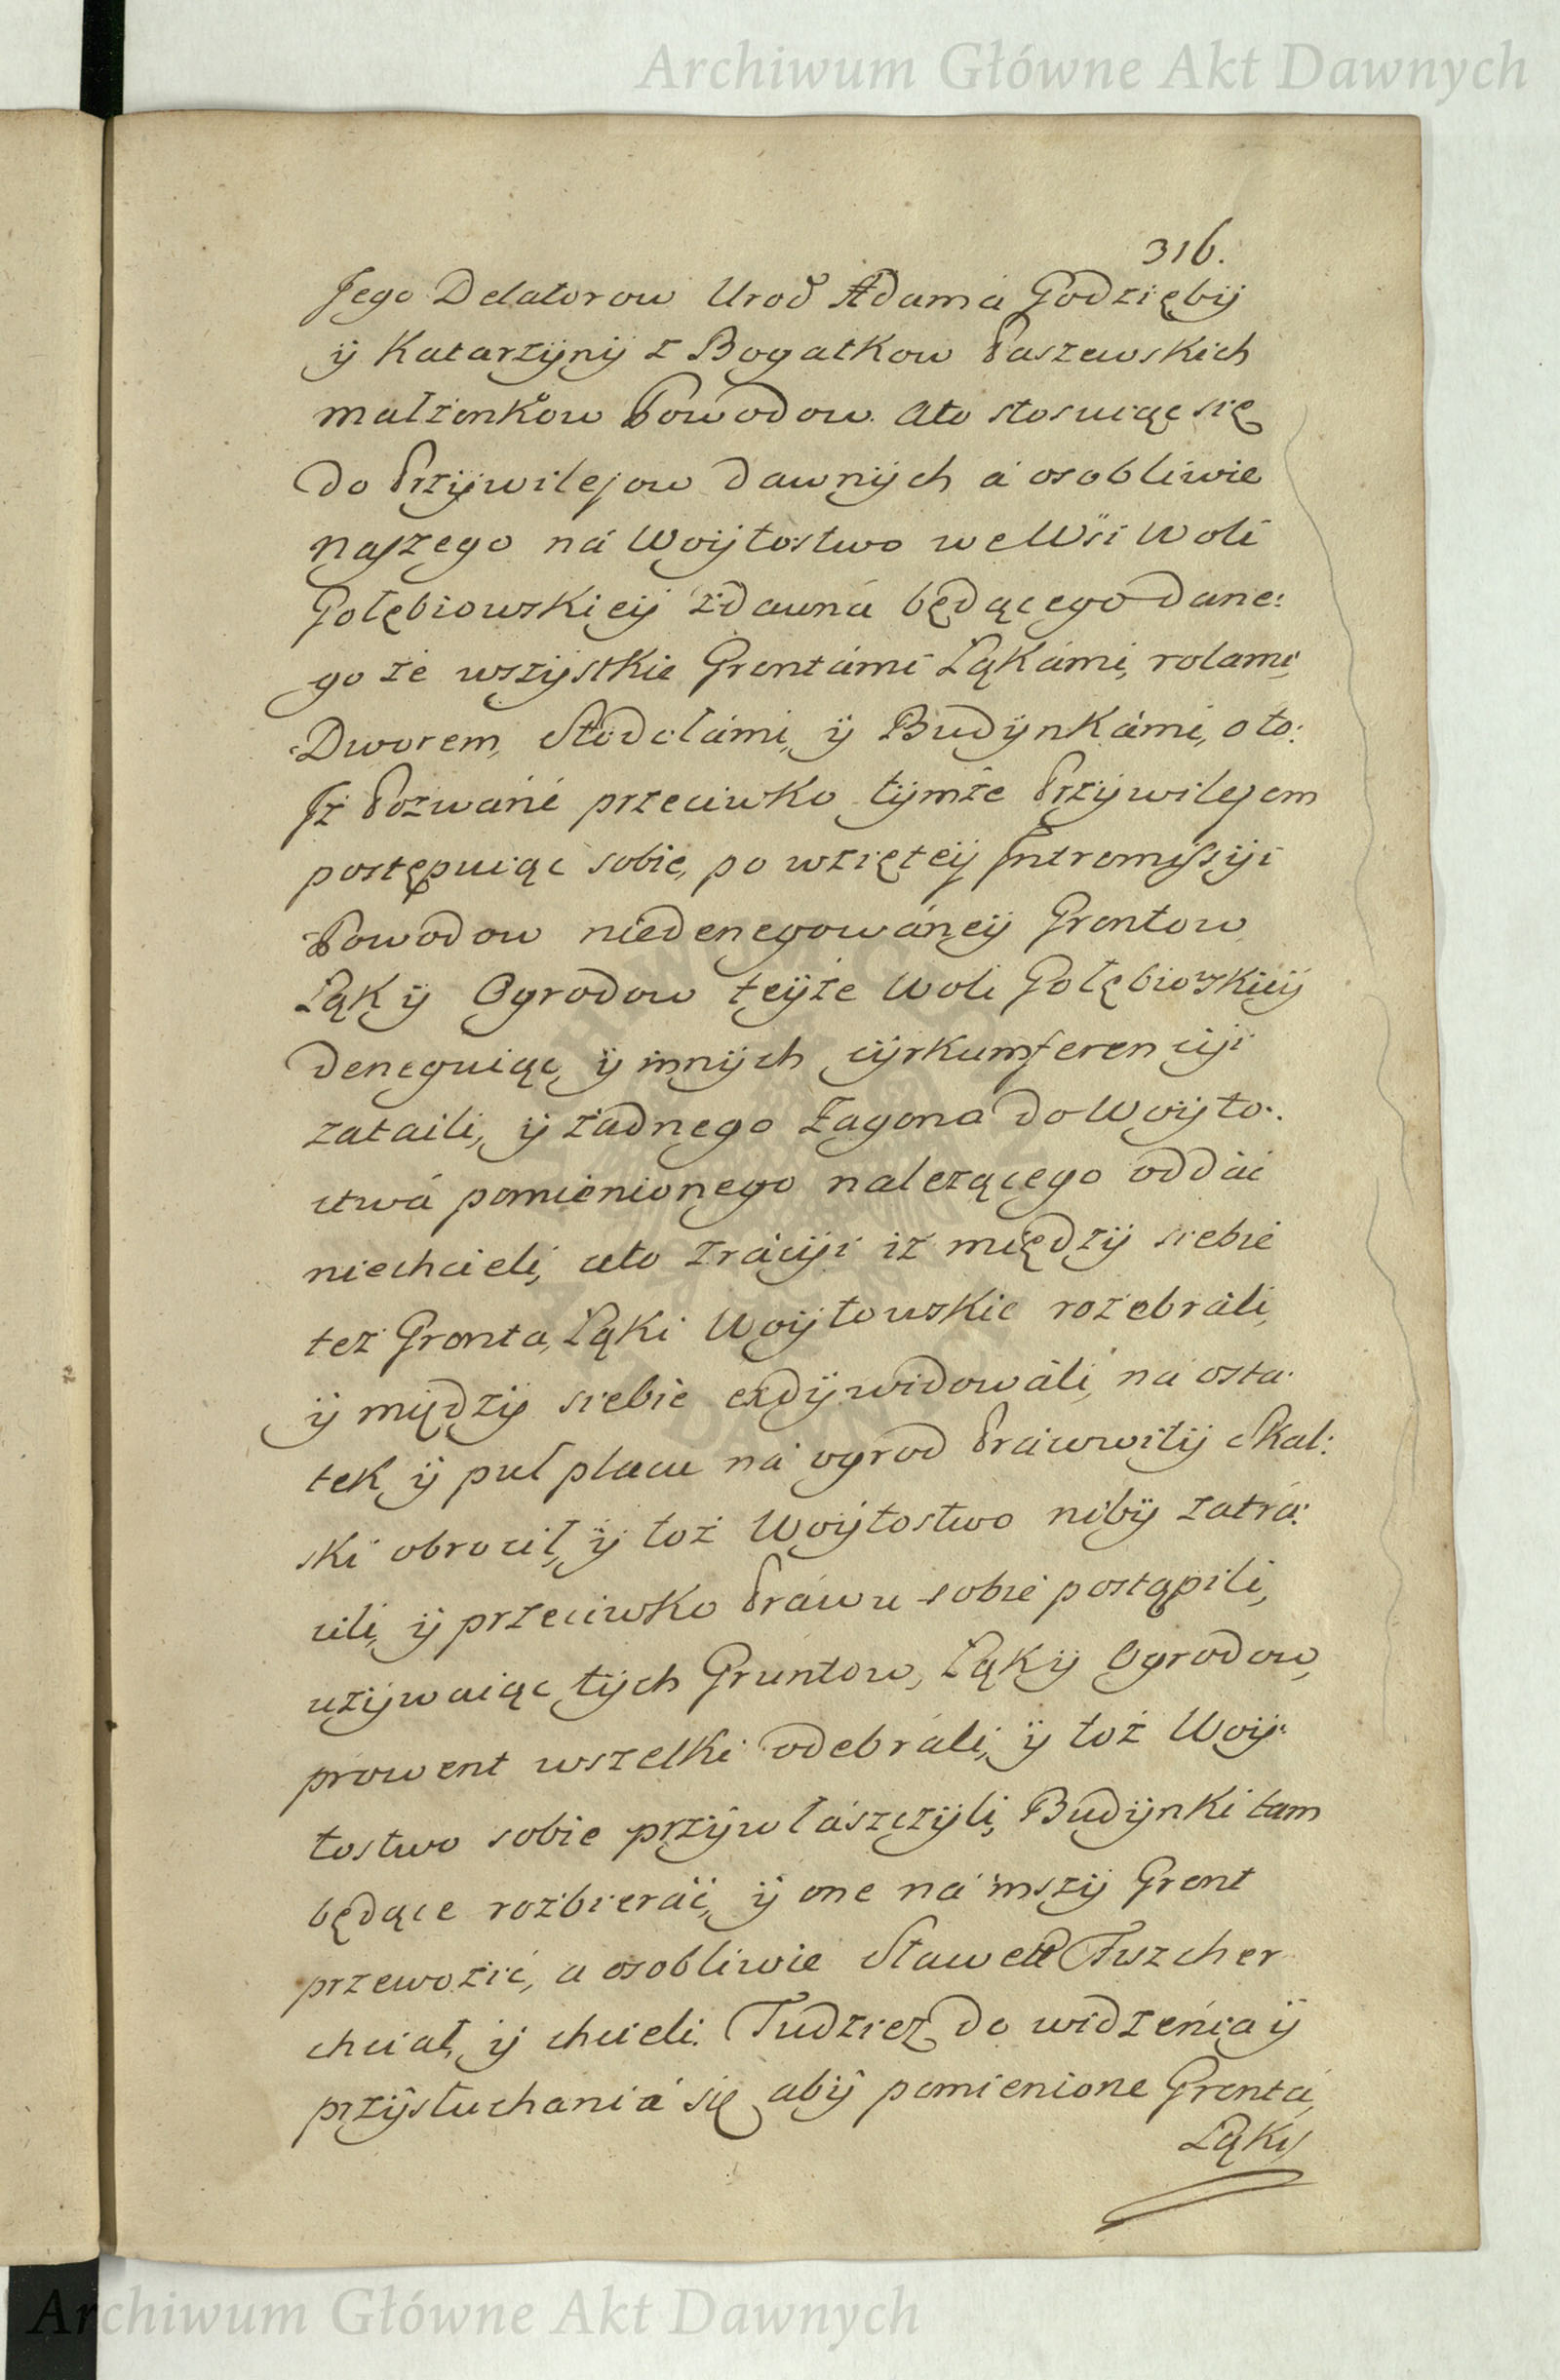 Archiwum Główne Akt Dawnych
316.
Jego Delatorow Urod Adama Godzięby
ÿ Katarzÿnÿ z Bogatkow Paszewskich
małżonkow Powodow. Ato stosuiąc się
do Przÿwilejow dawnÿch á osobliwie
naszego ná Woÿtostwo we Wsi Woli
Gołębiowskieÿ zdawná będącego dane:
go ze wszÿstkie Grontámi Łąkámi, rolami,
Dworem, Stodołámi, ÿ Budÿnkámi, o to:
Iż Pozwáni przeciwko tÿmże Przÿwilejom
postępuiąc sobie, po wzięteÿ Intromissÿi
Powodow niedenegowáneÿ Grontow
Łąk ÿ Ogrodow teÿże Woli Gołębiowskieÿ
deneguiąc, ÿ innÿch cÿrkumferencÿi
zataili, ÿ żadnego Zagona do Woÿto:
stwá pomienionego nalezącego oddáć
niechcieli, ato zráciÿi iż międzÿ siebie
też Gronta, Łąki Woÿtowskie rozebráli,
ÿ międzÿ siebie exdÿwidowáli, ná osta:
tek ÿ puł placu ná ogrod Práwowitÿ Skal:
ski obrocił, ÿ toż Woÿtostwo nibÿ zatrá:
cili, ÿ przeciwko Práwu sobie postąpili,
uzÿwaiąc tÿch Gruntow, Łąk ÿ Ogrodow,
prowent wszelki odebráli, ÿ toż Woÿ:
tostwo sobie przÿwłászczÿli, Budÿnki tam
będące rozbieráć, ÿ one ná inszÿ Gront
przewozić, a osobliwie Sławed Fuzcher
chciał, ÿ chcieli. Tudzież do widzeńia ÿ
przÿsłuchaniá się abÿ pomienione Grontá,
Łąki,
Archiwum Główne Akt Dawnych